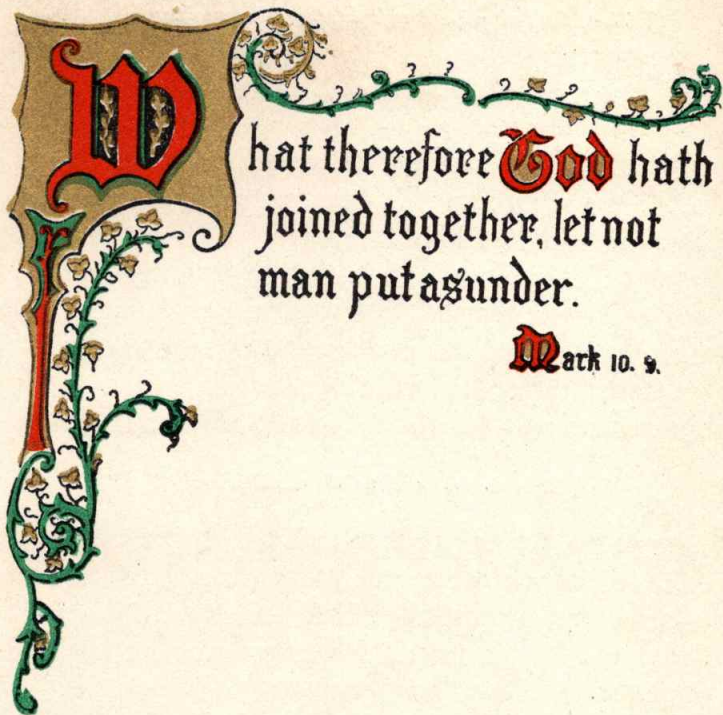 What therefore God hath
joined together, let not
man put asunder.
Mark 10. 9.